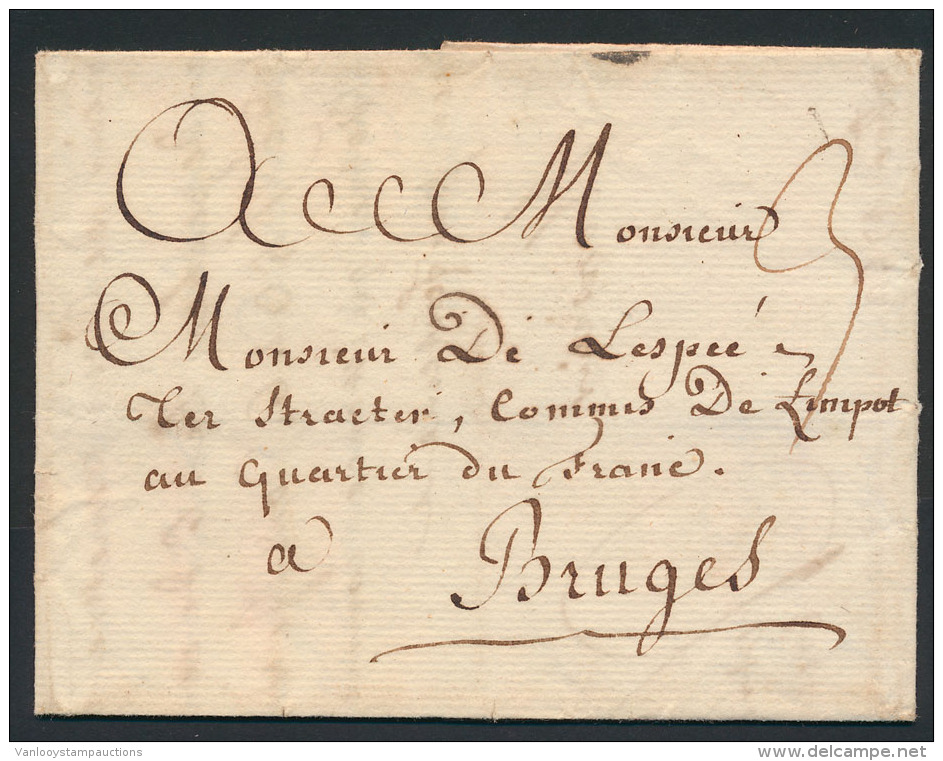 A Monsieur
3
Monsieur De Lespeé
Ter Straeten, Commis De L'impot
au Quartier du Franc.
a Bruges
Vanlooystampauctions
© www.delcampe.net